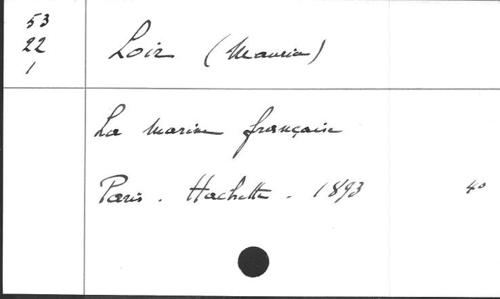 53
22
1
Loir (Maurice)
La marine française
Paris. Hachette. 1893 4°